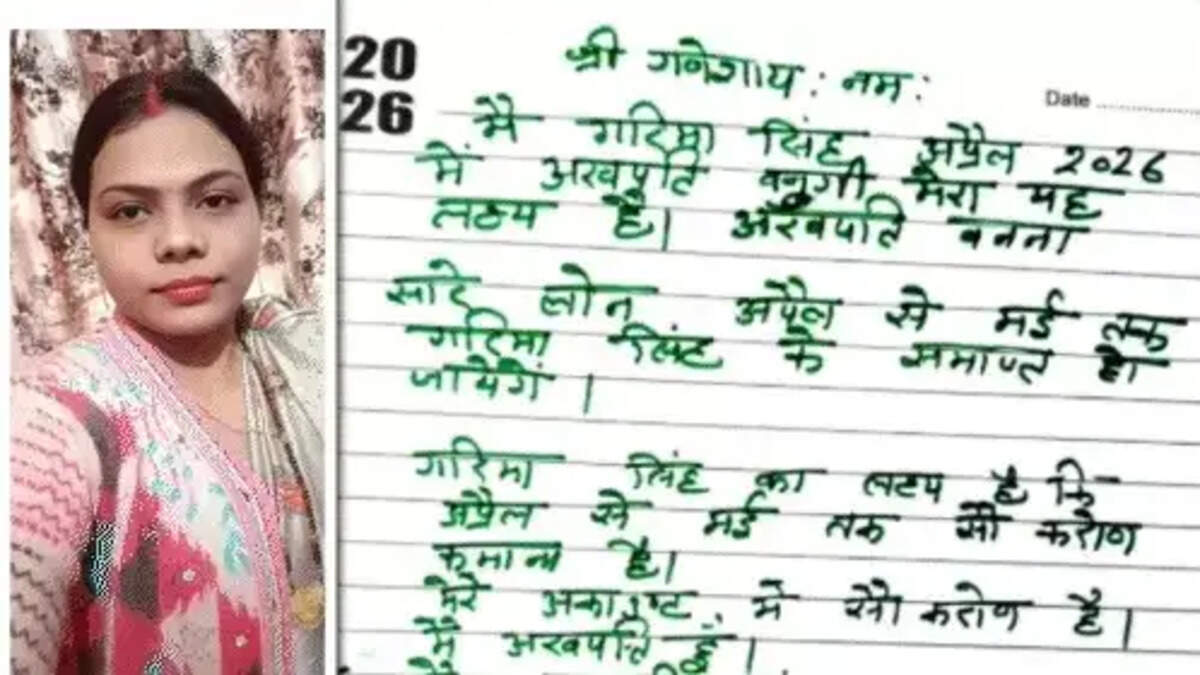 20
26
श्री गनेशाय : नमः
Date
मै गरिमा सिंह अप्रैल 2026
में अरवपति बनुगी मेरा यह
लक्ष्य है। अरवपति बनना
सारे लोन अप्रैल से मई तक
गरिमा सिंह के समाप्त हो
जायेगें ।
गरिमा सिंह का लक्ष्य है कि
अप्रैल से मई तक सौ करोण
कमाना है।
मेरे अकाउण्ट में सौ करोण है।
मै अरवपति हूँ ।